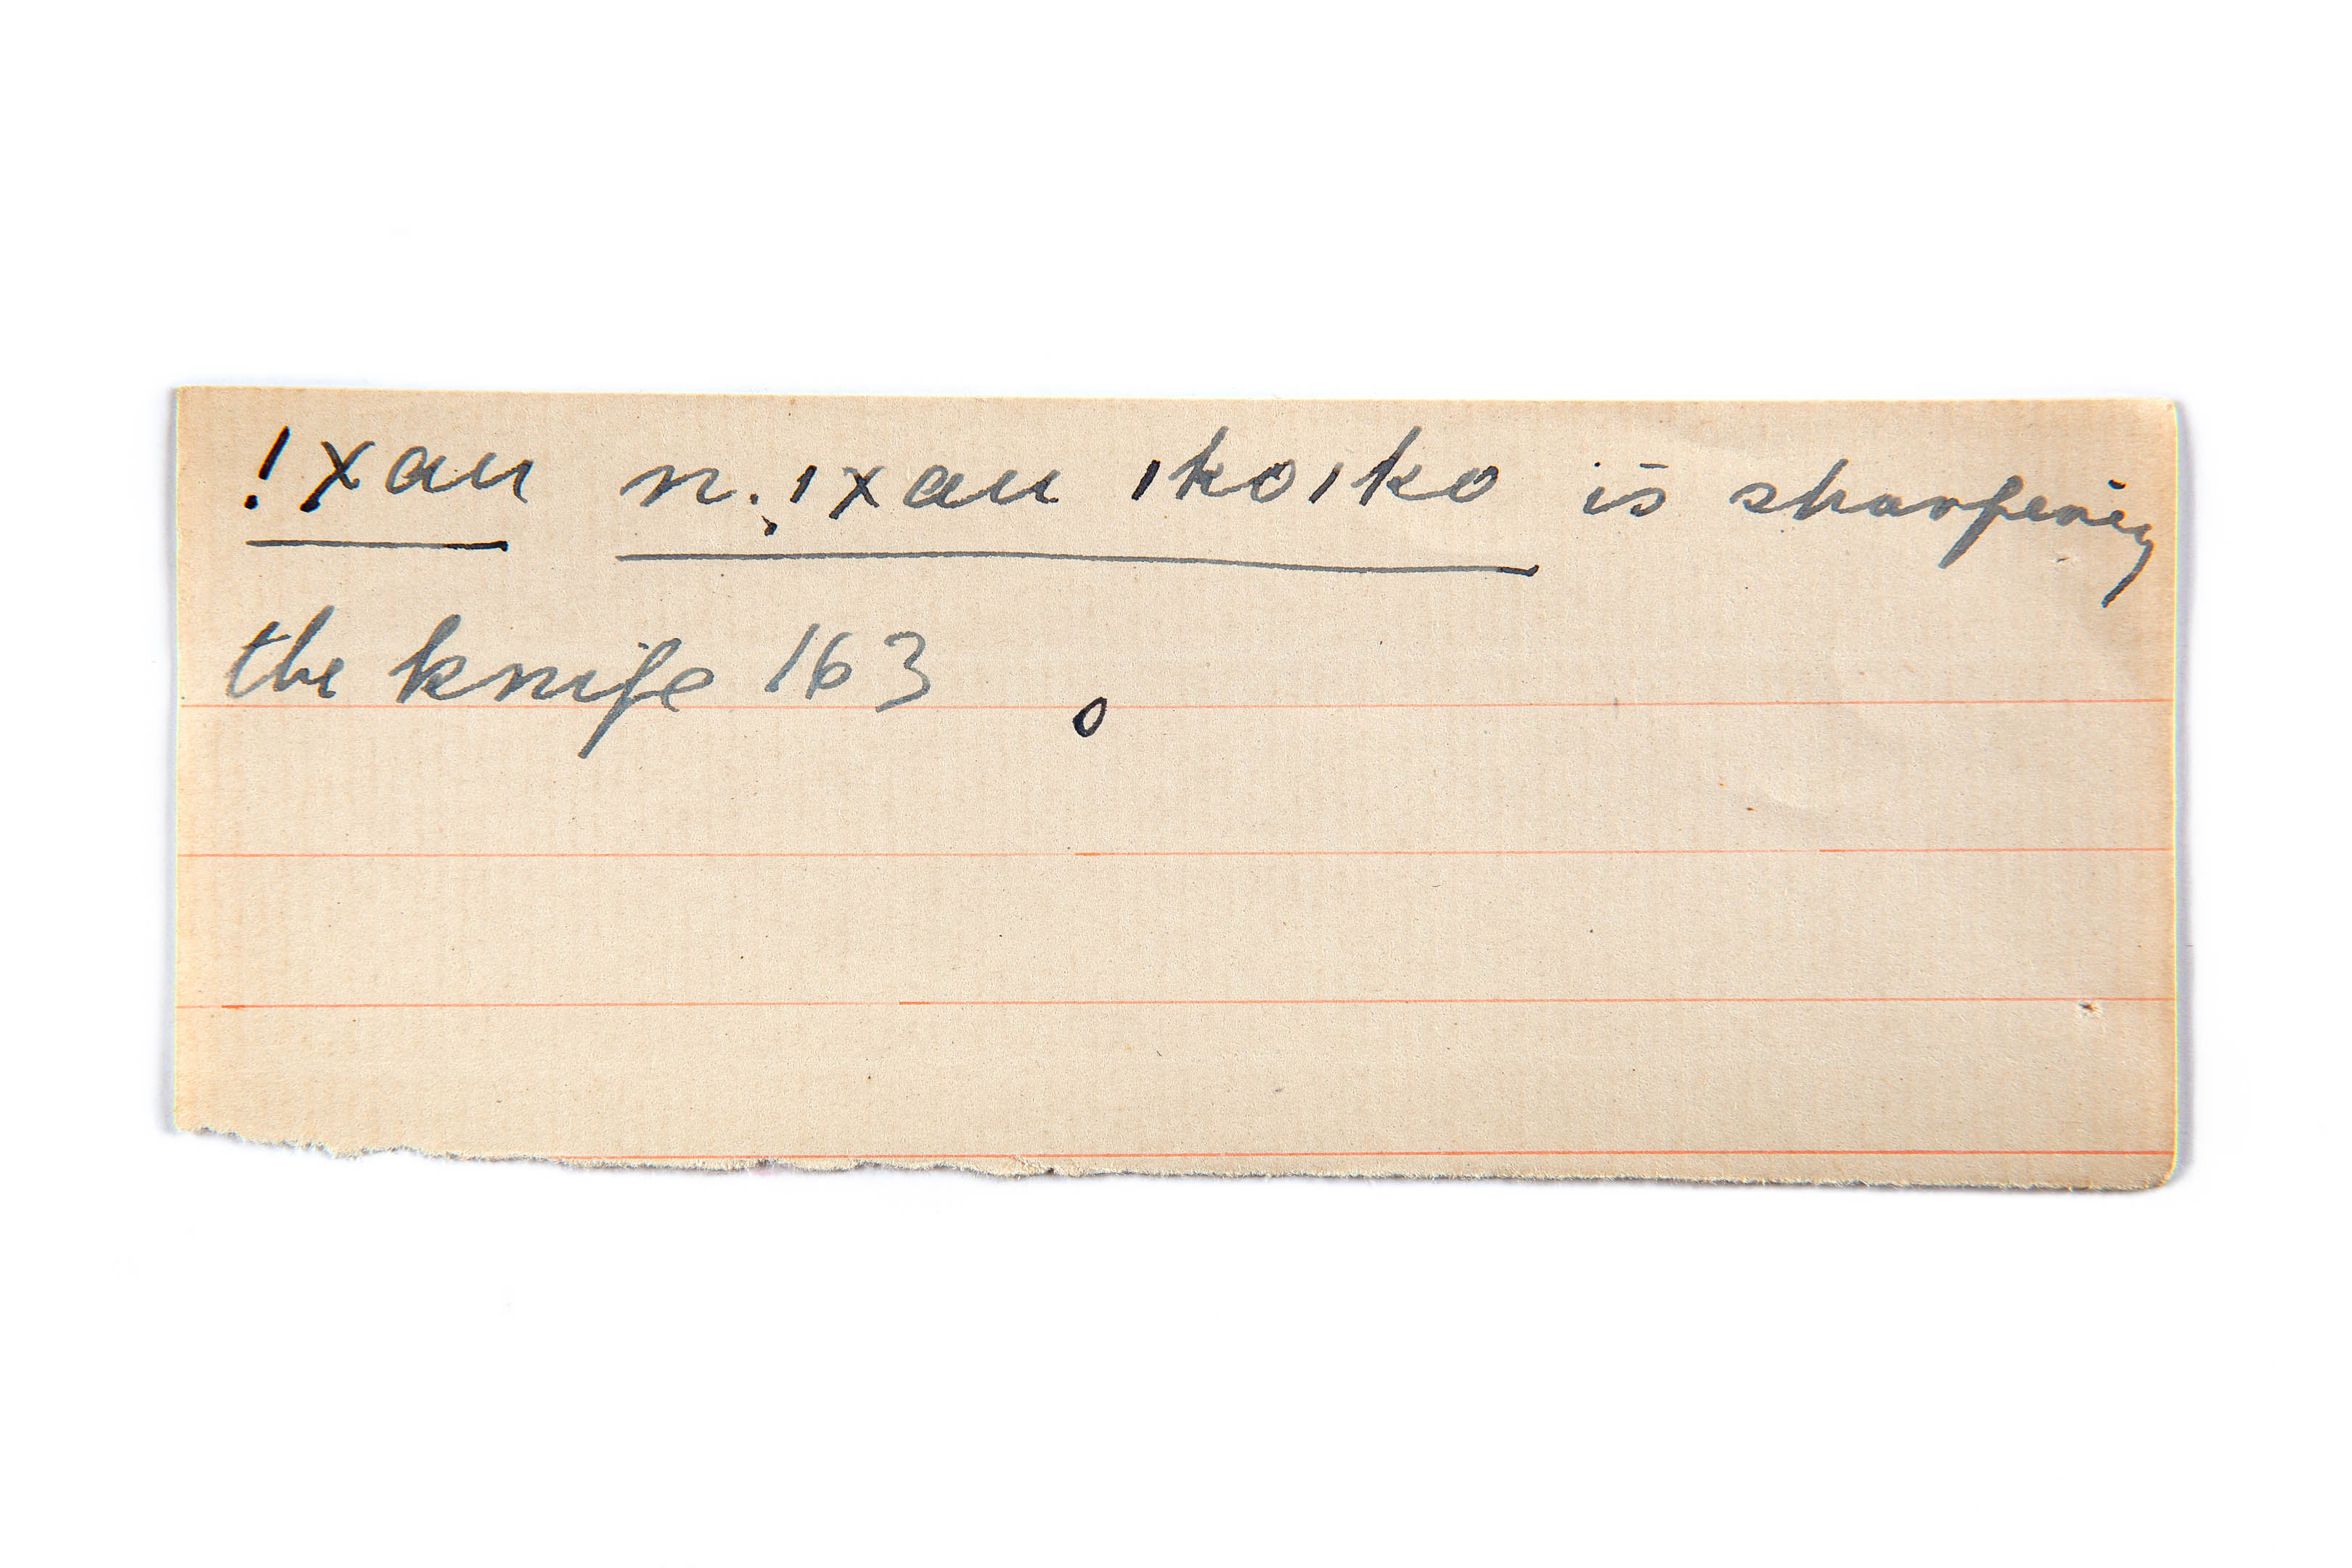 !xau n.ǃxau ǀkoǀko is sharpening
the knife 163 o